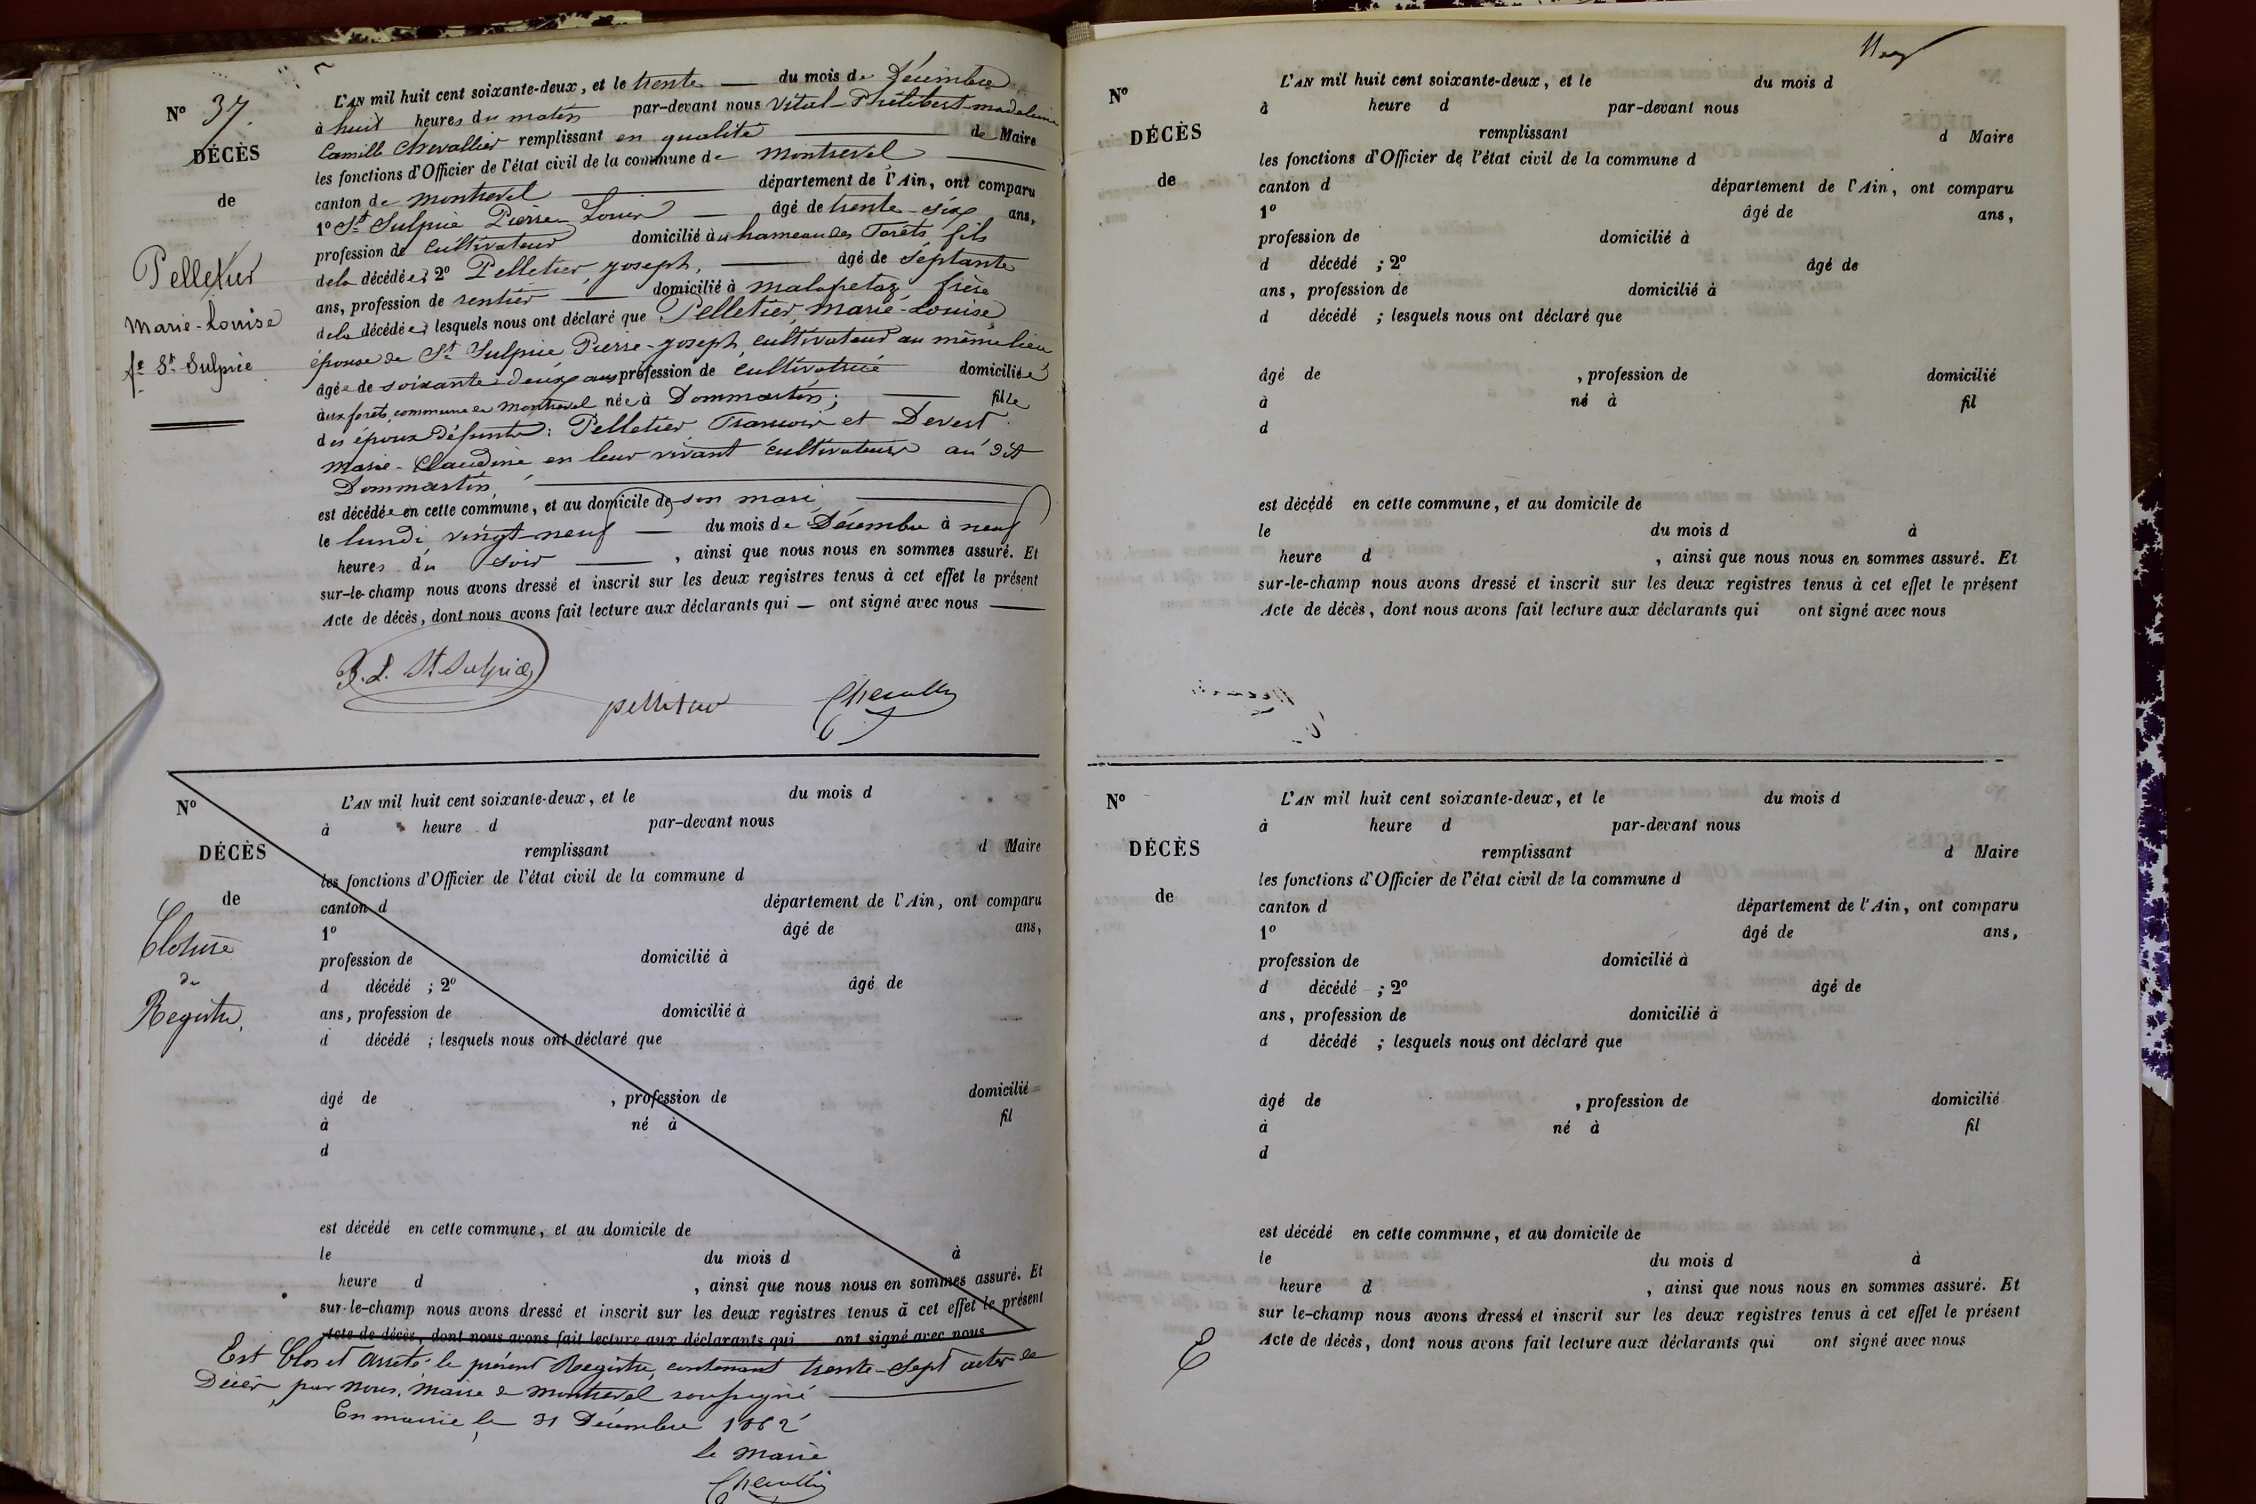 Nº 37.
DÉCÈS
de
Pelletier
Marie-Louise
fe St Sulpice
L'AN mil huit cent soixante-deux, et le trente — du mois de Décembre
à huit heures du matin par-devant nous Vital-Philibert-Madeleine
Camille Chevallier remplissant en qualité — de Maire
les fonctions d'Officier de l'état civil de la commune de Montrevel —
canton de Montrevel — département de l'Ain, ont comparu
1º St Sulpice Pierre Louis — âgé de trente-six ans,
profession de cultivateur domicilié au hameau des Forêts fils
de la décédée ; 2º Pelletier, Joseph, — âgé de septante
ans, profession de rentier — domicilié à Malafretaz, frère
de la décédée ; lesquels nous ont déclaré que Pelletier, Marie-Louise,
épouse de St Sulpice Pierre-Joseph, cultivateur au même lieu
âgée de soixante-deux ans profession de cultivatrice domiciliée
aux forêts, commune de Montrevel née à Dommartin; — fille
des époux défunts: Pelletier François et Devest
Marie-Claudine en leur vivant cultivateurs au dit
Dommartin, —
est décédée en cette commune, et au domicile de son mari, —
le lundi vingt-neuf — du mois de Décembre à neuf
heures du soir — , ainsi que nous nous en sommes assuré. Et
sur-le-champ nous avons dressé et inscrit sur les deux registres tenus à cet effet le présent
Acte de décès, dont nous avons fait lecture aux déclarants qui — ont signé avec nous —
P. L. St Sulpice
pelletier
Chevallier
Nº
DÉCÈS
de
Clôture
du
Registre.
L'AN mil huit cent soixante-deux, et le du mois d
à heure d par-devant nous
remplissant d Maire
les fonctions d'Officier de l'état civil de la commune d
canton d département de l'Ain, ont comparu
1º âgé de ans,
profession de domicilié à
d décédé ; 2º âgé de
ans, profession de domicilié à
d décédé ; lesquels nous ont déclaré que
âgé de , profession de domicilié
à né à fil
d
est décédé en cette commune, et au domicile de
le du mois d à
heure d , ainsi que nous nous en sommes assuré. Et
sur-le-champ nous avons dressé et inscrit sur les deux registres tenus à cet effet le présent
Acte de décès, dont nous avons fait lecture aux déclarants qui ont signé avec nous
Est Clos et arrêté le présent Registre, contenant trente-sept actes de
Décès, par nous, Maire de Montrevel soussigné —
En mairie, le 31 Décembre 1862
le Maire
Chevallier
Nº
DÉCÈS
de
L'AN mil huit cent soixante-deux, et le du mois d
à heure d par-devant nous
remplissant d Maire
les fonctions d'Officier de l'état civil de la commune d
canton d département de l'Ain, ont comparu
1º âgé de ans,
profession de domicilié à
d décédé ; 2º âgé de
ans, profession de domicilié à
d décédé ; lesquels nous ont déclaré que
âgé de , profession de domicilié
à né à fil
d
est décédé en cette commune, et au domicile de
le du mois d à
heure d , ainsi que nous nous en sommes assuré. Et
sur-le-champ nous avons dressé et inscrit sur les deux registres tenus à cet effet le présent
Acte de décès, dont nous avons fait lecture aux déclarants qui ont signé avec nous
Nº
DÉCÈS
de
L'AN mil huit cent soixante-deux, et le du mois d
à heure d par-devant nous
remplissant d Maire
les fonctions d'Officier de l'état civil de la commune d
canton d département de l'Ain, ont comparu
1º âgé de ans,
profession de domicilié à
d décédé ; 2º âgé de
ans, profession de domicilié à
d décédé ; lesquels nous ont déclaré que
âgé de , profession de domicilié
à né à fil
d
est décédé en cette commune, et au domicile de
le du mois d à
heure d , ainsi que nous nous en sommes assuré. Et
sur le-champ nous avons dressé et inscrit sur les deux registres tenus à cet effet le présent
Acte de décès, dont nous avons fait lecture aux déclarants qui ont signé avec nous